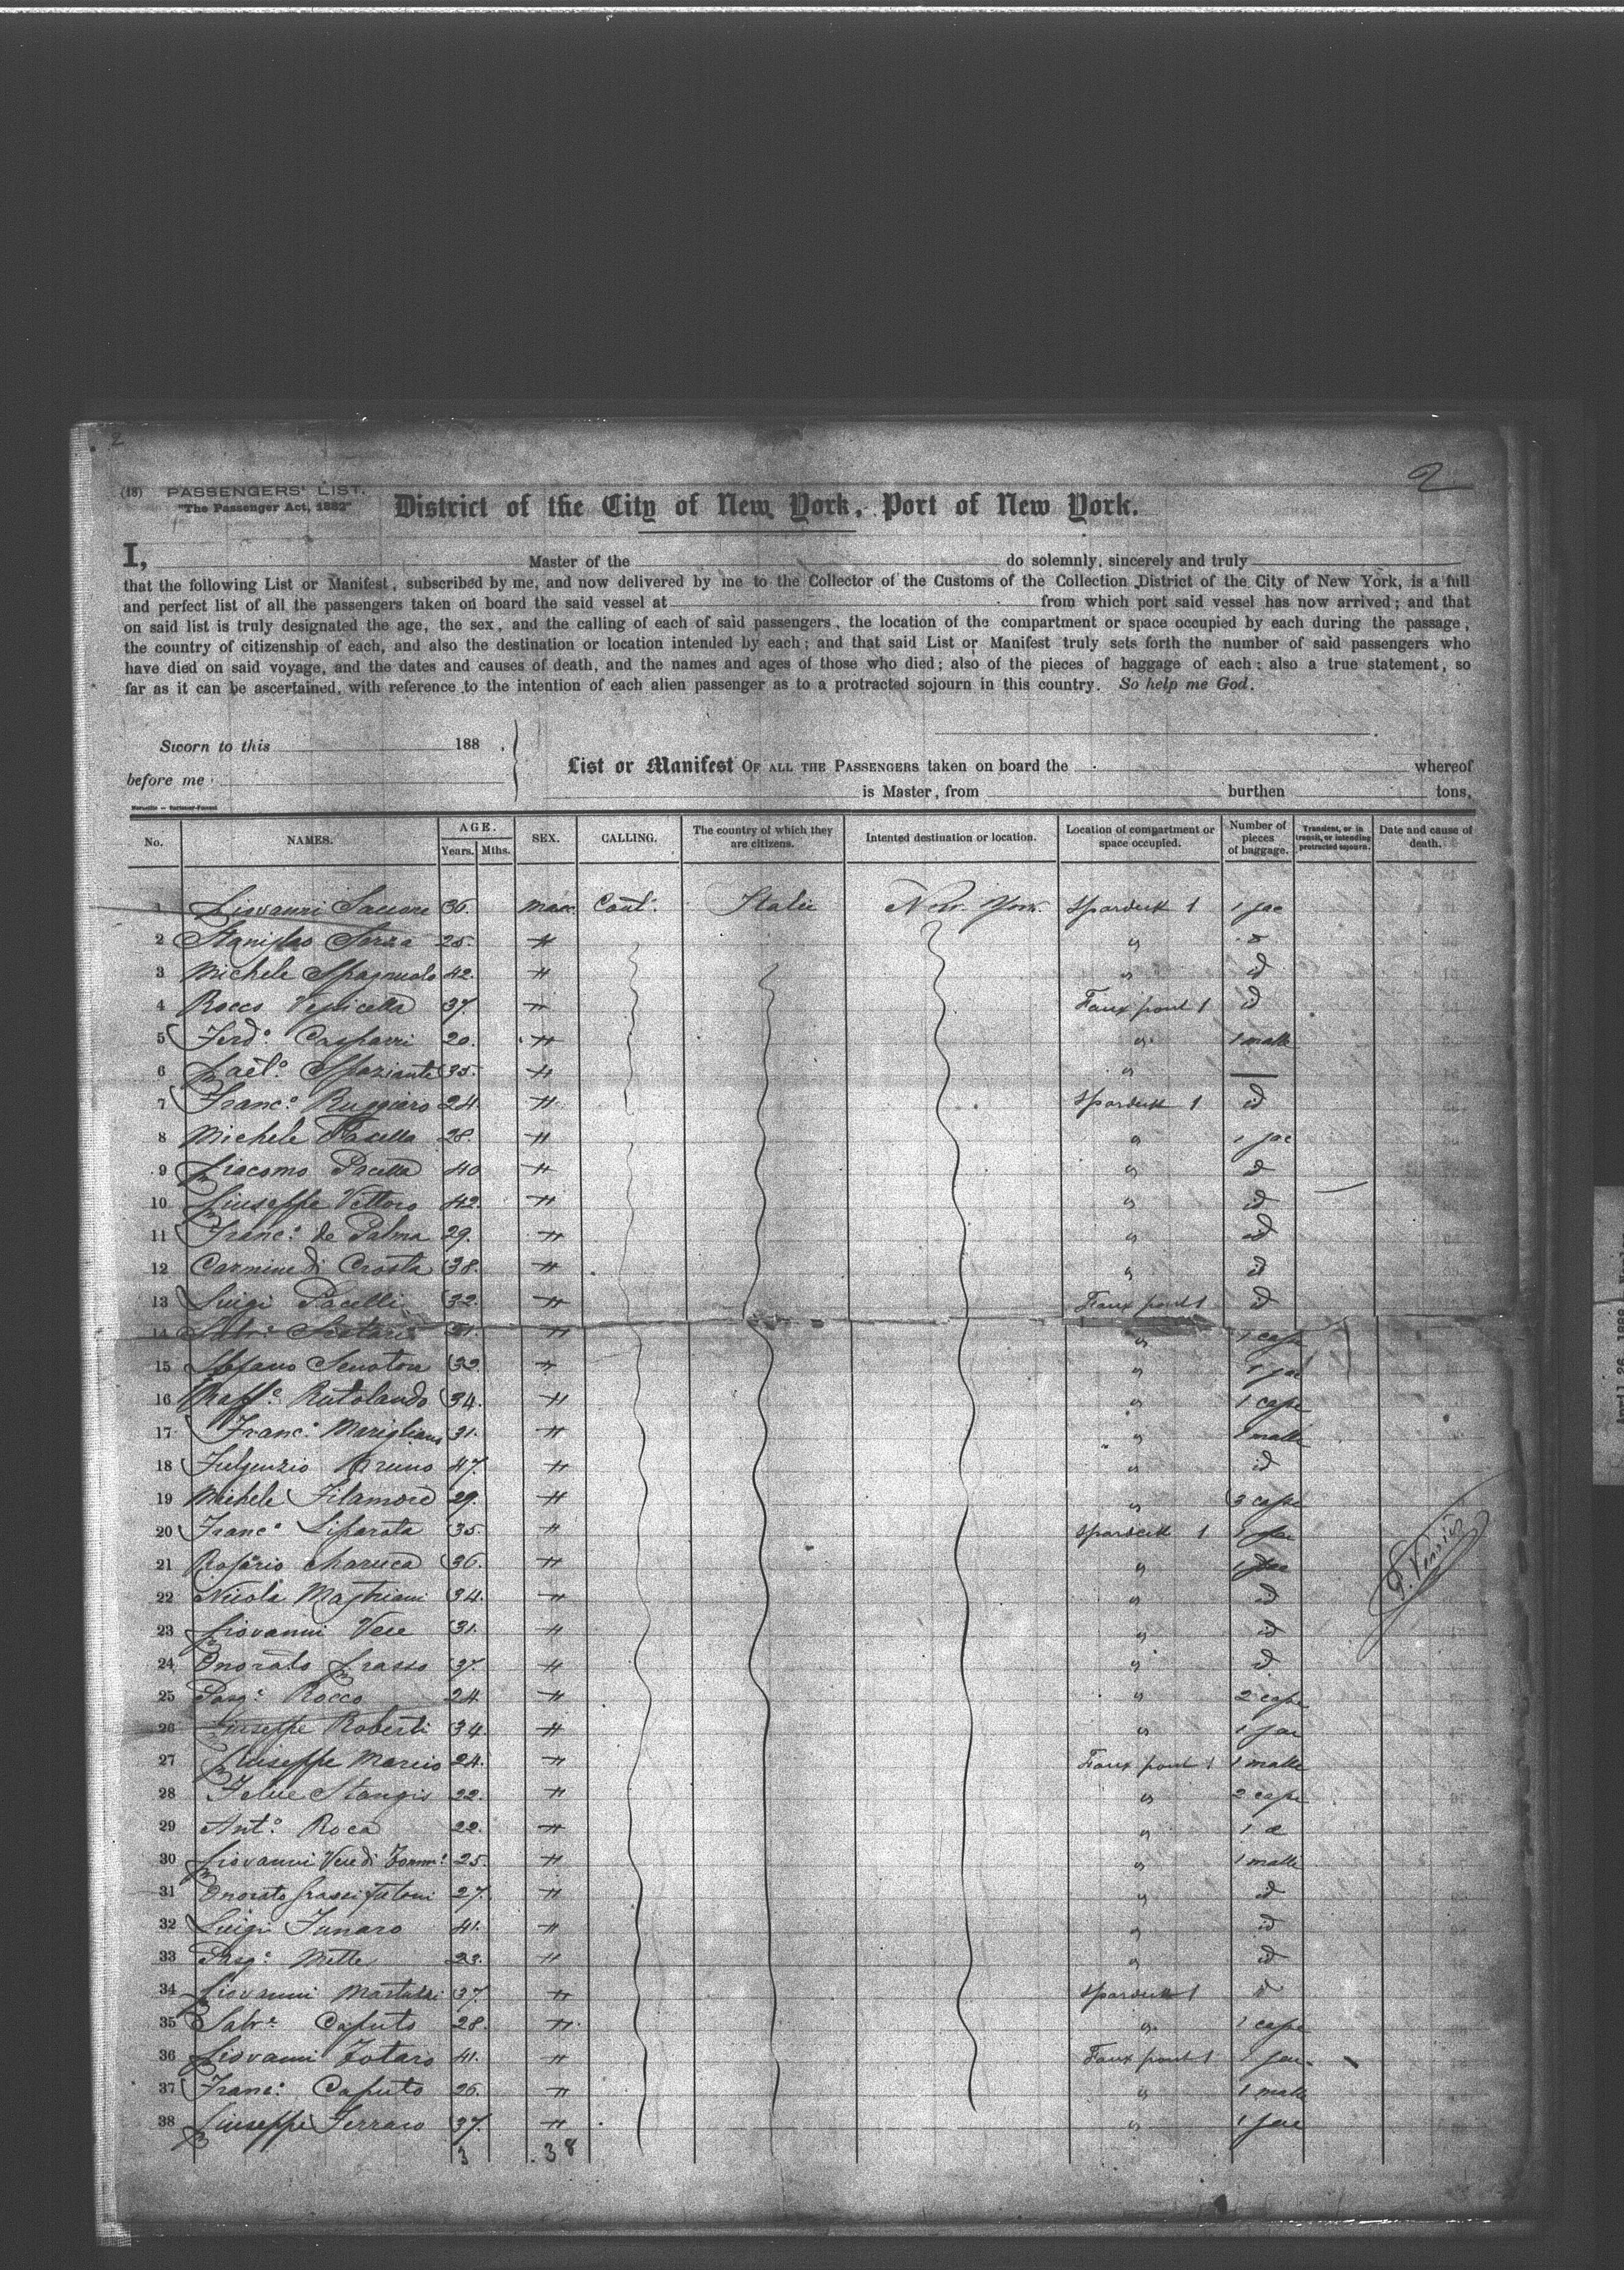 2
2
(18) PASSENGERS' LIST.
"The Passenger Act, 1882"
District of the City of New York, Port of New York.
I, Master of the do solemnly, sincerely and truly
that the following List or Manifest, subscribed by me, and now delivered by me to the Collector of the Customs of the Collection District of the City of New York, is a full
and perfect list of all the passengers taken on board the said vessel at from which port said vessel has now arrived; and that
on said list is truly designated the age, the sex, and the calling of each of said passengers, the location of the compartment or space occupied by each during the passage,
the country of citizenship of each, and also the destination or location intended by each; and that said List or Manifest truly sets forth the number of said passengers who
have died on said voyage, and the dates and causes of death, and the names and ages of those who died; also of the pieces of baggage of each; also a true statement, so
far as it can be ascertained, with reference to the intention of each alien passenger as to a protracted sojourn in this country. So help me God.
Sworn to this 188 .
before me
List or Manifest OF ALL THE PASSENGERS taken on board the whereof
is Master, from burthen tons,
No. NAMES. AGE. Years. Mths. SEX. CALLING. The country of which they are citizens. Intented destination or location. Location of compartment or space occupied. Number of pieces of baggage. Transient, or in transit, or intending protracted sojourn. Date and cause of death.
1 Giovanni Saccone 36. masc. Cont. Italie New York. Spardeck 1 1 sac
2 Stanislao Serra 25. "
3 Michele Spagnuolo 42. " " id
4 Rocco 37. " Faux pont 1 id
5 Ferdo. Caspani 20. " " 1 malle
6 Gaeto. Spaziante 35. " " —
7 Franco. Ruggiero 24. " Spardeck 1 id
8 Michele Pacella 28. " " 1 sac
9 Giacomo Pacella 40 " " id
10 Giuseppe Vettoro 42. " " id
11 Franco. de Palma 29. " " id
12 Carmine di Crosta 38. " " id
13 Luigi Pacelli 32. " Faux pont 1 id
14 31. " " 1 cape
15 Stefano Senatore 32. " " 1 sac
16 Raffe. Rutolando 34. " " 1 cape
17 Franco. Marigliano 31. " " 1 malle
18 Fulgenzio Bruno 47. " " id
19 Michele Filamore 29. " " 3 cape
20 Franco. Liparota 35. " Spardeck 1 1 sac
21 Rosario Maruca 36. " " 1 sac
22 Nicola Mastriani 34. " " id
23 Giovanni Vece 31. " " id
24 Onorato Grasso 37. " " id
25 Pasqe. Rocco 24. " " 2 cape
26 Giuseppe Roberti 34 " " 1 sac
27 Giuseppe Marcio 24. " Faux pont 1 1 malle
28 Felice Stangis 22. " " 2 cape
29 Anto. Roca 22. " " 1
30 Giovanni Vece di Tomm. 25. " " 1 malle
31 Onorato 27. " " id
32 Luigi Funaro 41. " " id
33 Pasqe. Melle 23. " " id
34 Giovanni 37. " Spardeck 1 id
35 Salve. Caputo 28. " " 1 cape
36 Giovanni Totaro 41. " Faux pont 1 1 sac
37 Franco. Caputo 26. " " 1 malle
38 Giuseppe Ferraro 37. " " 1 sac
3 38